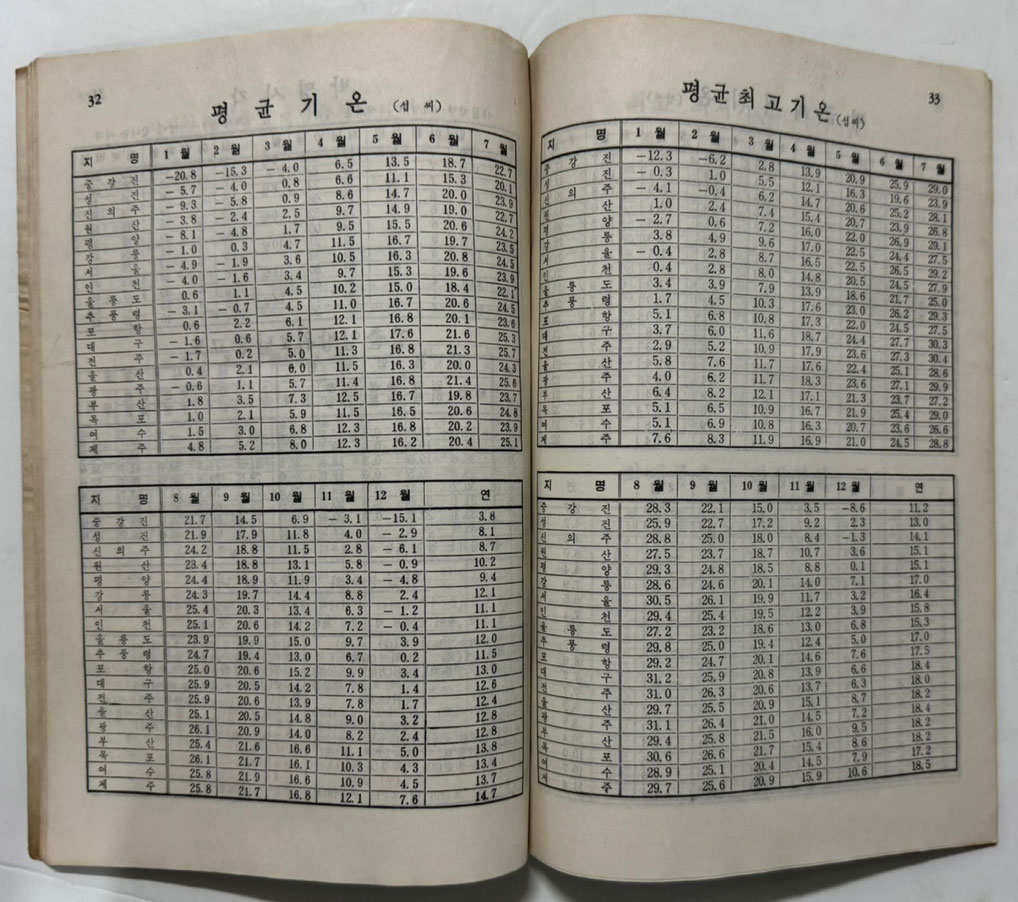 32
평균기온 (섭씨)
지명 1월 2월 3월 4월 5월 6월 7월
중강진 -20.8 -15.3 -4.0 6.5 13.5 18.7 22.7
성진 -5.7 -4.0 0.8 6.6 11.1 15.3 20.1
신의주 -9.3 -5.8 0.9 8.6 14.7 20.0 23.9
원산 -3.8 -2.4 2.5 9.7 14.9 19.0 22.7
평양 -8.1 -4.8 1.7 9.5 15.5 20.6 24.2
강릉 -1.0 0.3 4.7 11.5 16.7 19.7 23.5
서울 -4.9 -1.9 3.6 10.5 16.3 20.8 24.5
인천 -4.0 -1.6 3.4 9.7 15.3 19.6 23.9
울릉도 0.6 1.1 4.5 10.2 15.0 18.4 22.1
추풍령 -3.1 -0.7 4.5 11.0 16.7 20.6 24.5
포항 0.6 2.2 6.1 12.1 16.8 20.1 23.6
대구 -1.6 0.6 5.7 12.1 17.6 21.6 25.3
전주 -1.7 0.2 5.0 11.3 16.8 21.3 25.7
울산 0.4 2.1 6.0 11.5 16.3 20.0 24.3
광주 -0.6 1.1 5.7 11.4 16.8 21.4 25.6
부산 1.8 3.5 7.3 12.5 16.7 19.8 23.7
목포 1.0 2.1 5.9 11.5 16.5 20.6 24.8
여수 1.5 3.0 6.8 12.3 16.8 20.2 23.9
제주 4.8 5.2 8.0 12.3 16.2 20.4 25.1
지명 8월 9월 10월 11월 12월 연
중강진 21.7 14.5 6.9 -3.1 -15.1 3.8
성진 21.9 17.9 11.8 4.0 -2.9 8.1
신의주 24.2 18.8 11.5 2.8 -6.1 8.7
원산 23.4 18.8 13.1 5.8 -0.9 10.2
평양 24.4 18.9 11.9 3.4 -4.8 9.4
강릉 24.3 19.7 14.4 8.8 2.4 12.1
서울 25.4 20.3 13.4 6.3 -1.2 11.1
인천 25.1 20.6 14.2 7.2 -0.4 11.1
울릉도 23.9 19.9 15.0 9.7 3.9 12.0
추풍령 24.7 19.4 13.0 6.7 0.2 11.5
포항 25.0 20.6 15.2 9.9 3.4 13.0
대구 25.9 20.5 14.2 7.8 1.4 12.6
전주 25.9 20.6 13.9 7.8 1.7 12.4
울산 25.1 20.5 14.8 9.0 3.2 12.8
광주 26.1 20.9 14.0 8.2 2.4 12.8
부산 25.4 21.6 16.6 11.1 5.0 13.8
목포 26.1 21.7 16.1 10.3 4.3 13.4
여수 25.8 21.9 16.6 10.9 4.5 13.7
제주 25.8 21.7 16.8 12.1 7.6 14.7
33
평균최고기온 (섭씨)
지명 1월 2월 3월 4월 5월 6월 7월
중강진 -12.3 -6.2 2.8 13.9 20.9 25.9 29.0
성진 -0.3 1.0 5.5 12.1 16.3 19.6 23.9
신의주 -4.1 -0.4 6.2 14.7 20.6 25.2 28.1
원산 1.0 2.4 7.4 15.4 20.7 23.9 26.8
평양 -2.7 0.6 7.2 16.0 22.0 26.9 29.1
강릉 3.8 4.9 9.6 17.0 22.5 24.4 27.5
서울 -0.4 2.8 8.7 16.5 22.5 26.5 29.2
인천 0.4 2.8 8.0 14.8 20.5 24.5 27.9
울릉도 3.4 3.9 7.9 13.9 18.6 21.7 25.0
추풍령 1.7 4.5 10.3 17.6 23.0 26.2 29.3
포항 5.1 6.8 10.8 17.3 22.0 24.5 27.5
대구 3.7 6.0 11.6 18.7 24.4 27.7 30.3
전주 2.9 5.2 10.9 17.9 23.6 27.3 30.4
울산 5.8 7.6 11.7 17.6 22.4 25.1 28.6
광주 4.0 6.2 11.7 18.3 23.6 27.1 29.9
부산 6.4 8.2 12.1 17.1 21.3 23.7 27.2
목포 5.1 6.5 10.9 16.7 21.9 25.4 29.0
여수 5.1 6.9 10.8 16.3 20.7 23.6 26.6
제주 7.6 8.3 11.9 16.9 21.0 24.5 28.8
지명 8월 9월 10월 11월 12월 연
중강진 28.3 22.1 15.0 3.5 -8.6 11.2
성진 25.9 22.7 17.2 9.2 2.3 13.0
신의주 28.8 25.0 18.0 8.4 -1.3 14.1
원산 27.5 23.7 18.7 10.7 3.6 15.1
평양 29.3 24.8 18.5 8.8 0.1 15.1
강릉 28.6 24.6 20.1 14.0 7.1 17.0
서울 30.5 26.1 19.9 11.7 3.2 16.4
인천 29.4 25.4 19.5 12.2 3.9 15.8
울릉도 27.2 23.2 18.6 13.0 6.8 15.3
추풍령 29.8 25.0 19.4 12.4 5.0 17.0
포항 29.2 24.7 20.1 14.6 7.6 17.5
대구 31.2 25.9 20.8 13.9 6.6 18.4
전주 31.0 26.3 20.6 13.7 6.3 18.0
울산 29.7 25.5 20.9 15.1 8.7 18.2
광주 31.1 26.4 21.0 14.5 7.2 18.4
부산 29.4 25.8 21.5 16.0 9.5 18.2
목포 30.6 26.6 21.7 15.4 8.6 18.2
여수 28.9 25.1 20.4 14.5 7.9 17.2
제주 29.7 25.6 20.9 15.9 10.6 18.5